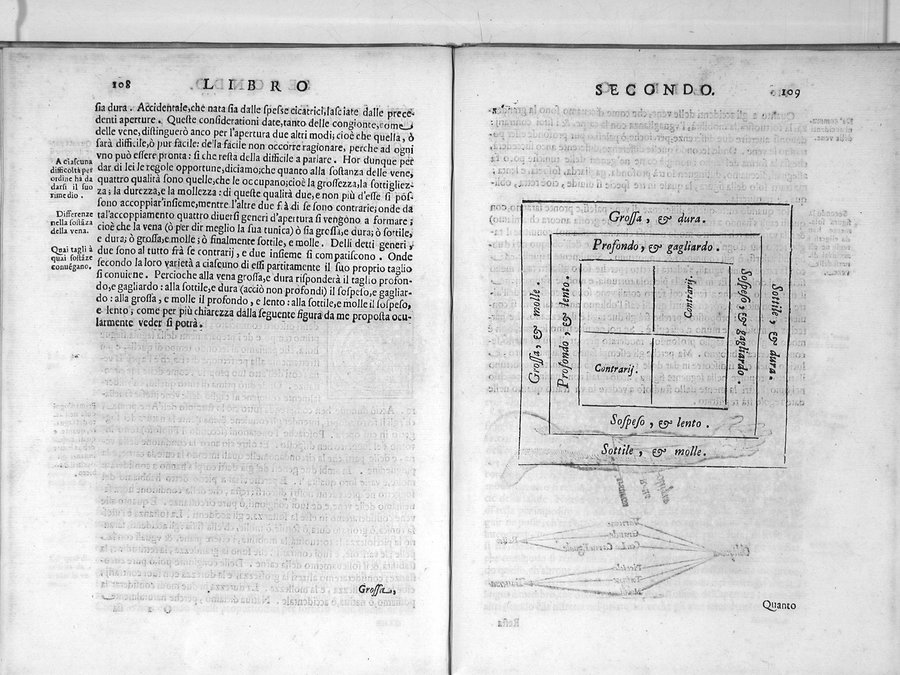 108 LIBRO
sia dura. Accidentale, che nata sia dalle spesse cicatrici, lasciate dalle prece
denti aperture. Queste considerationi date, tanto delle congionte, come
delle vene, distinguerò anco per l'apertura due altri modi; cioè che quella, ò
sarà difficile, ò pur facile: de la facile non occorre ragionare, perche ad ogni
vno può essere pronta: si che resta della difficile a parlare. Hor dunque per
dar di lei le regole opportune, diciamo; che quanto alla sostanza delle vene,
quattro qualità sono quelle, che le occupano; cioè la grossezza, la sottigliez-
za; la durezza, e la mollezza: di queste qualità due, e non più d'esse si pos-
sono accoppiar'insieme, mentre l'altre due frà di se sono contrarie; onde da
tal'accoppiamento quattro diuersi generi d'apertura si vengono a formare;
cioè che la vena (ò per dir meglio la sua tunica) ò sia grossa, e dura; ò sottile,
e dura; ò grossa, e molle; ò finalmente sottile, e molle. Delli detti generi,
due sono al tutto frà se contrarij, e due insieme si compatiscono. Onde
secondo la loro varietà a ciascuno di essi partitamente il suo proprio taglio
si conuiene. Percioche alla vena grossa, e dura risponderà il taglio profon-
do, e gagliardo: alla sottile, e dura (acciò non profondi) il sospeso, e gagliar-
do: alla grossa, e molle il profondo, e lento: alla sottile, e molle il sospeso,
e lento, come per più chiarezza dalla seguente figura da me proposta ocu-
larmente veder si potrà.
A ciascuna
difficoltà per
ordine hà da
darsi il suo
rimedio.
Differenze
nella sostãza
della vena.
Quai tagli à
quai sostãze
conuẽgano.
Grossa,
SECONDO. 109
Grossa, & dura.
Profondo, & gagliardo.
Grossa, & molle.
Profondo, & lento.
Contrarij.
Contrarij.
Sospeso, & gagliardo.
Sottile, & dura.
Sospeso, & lento.
Sottile, & molle.
Quanto